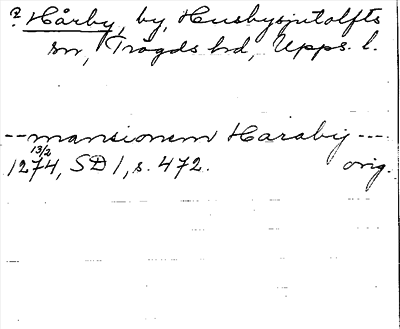 ? Hårby, by, Husbysjutolfts
sn, Trögds hd, Upps. l.
-- mansionem Haraby ----
13/2
1274, SD 1, s. 472. orig.